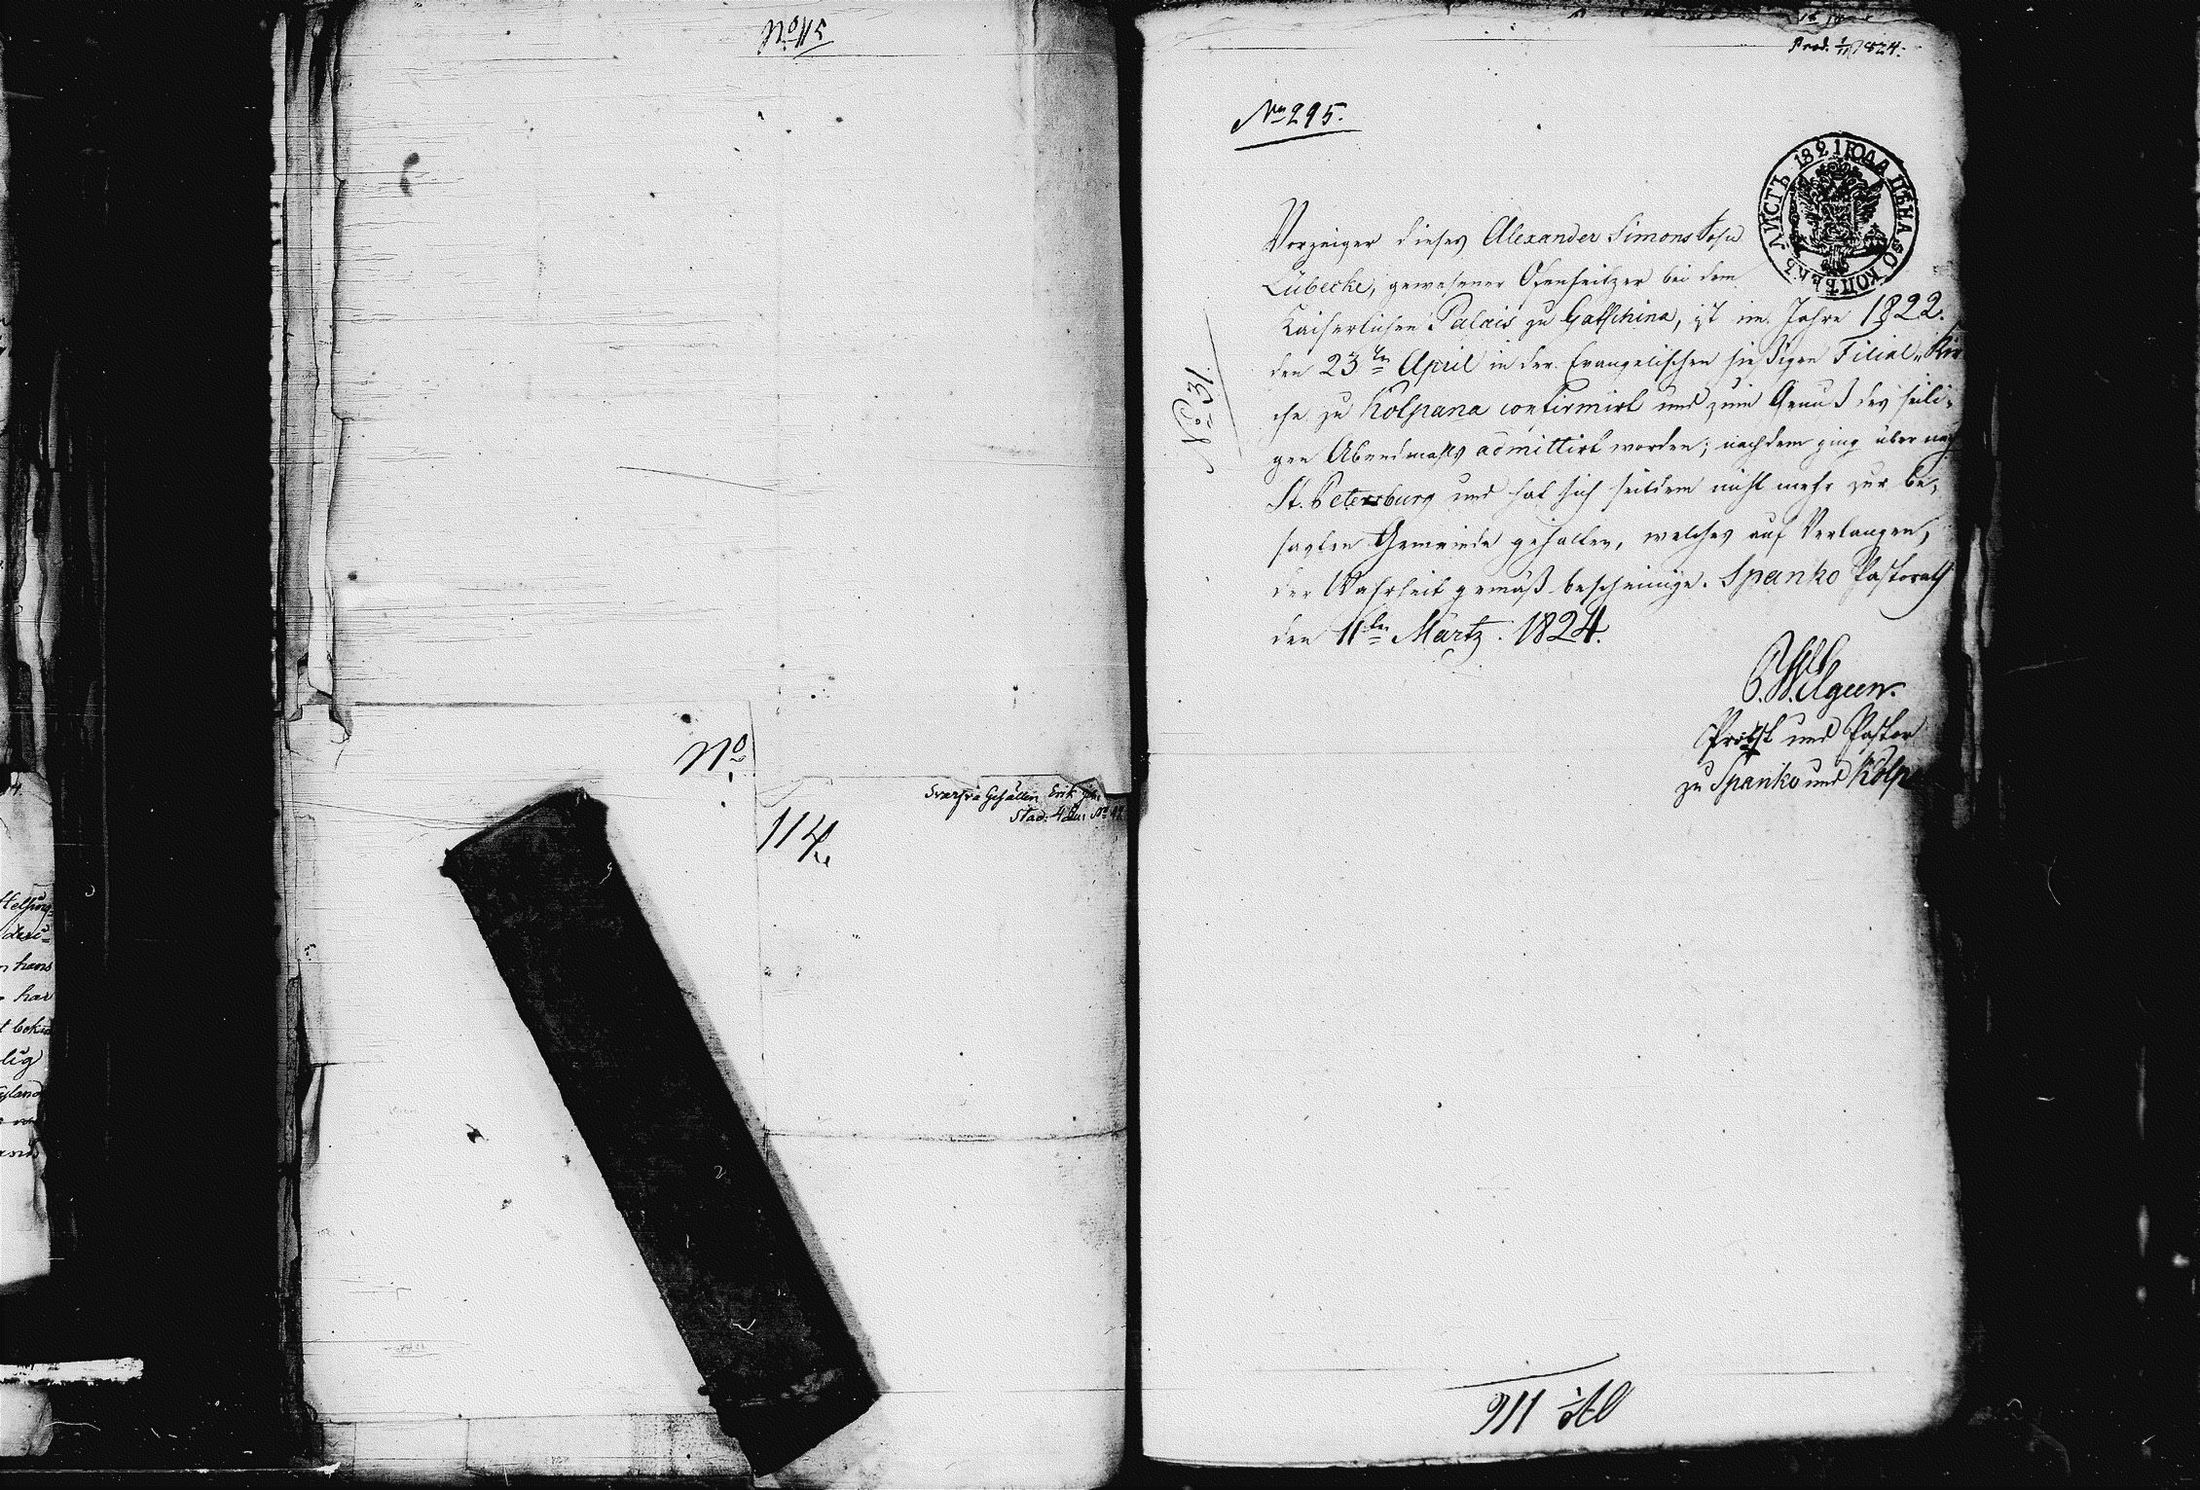 No 115
No
114
Svarfva Gesällen Erik
Stad: 4
Prod. 1824.
No 295.
ЛИСТЪ 1821 ГОДА ЦѢНА 50 КОПѢЕКЪ
Vorzeiger dieses Alexander Simons Sohn
Lübecke, gewesener Ofenheitzer bei dem
Kaiserlichen Palais zu Gatschina, ist im Jahre 1822.
den 23ten April in der Evangelischen hiesigen Filial-Kir
che zu Kolpana confirmirt und zum Genuß des heili-
gen Abendmahls admittirt worden; nachdem ging über nach
St. Petersburg und hat sich seitdem nicht mehr zur be-
sagten Gemeinde gehalten, welches auf Verlangen,
der Wahrheit gemäß bescheinige. Spanko Pastorath
den 11ten Märtz. 1824.
Probst und Pastor
zu Spanko und Kolp
No 131
No 116
Helsing-
n hans
har
t
lig